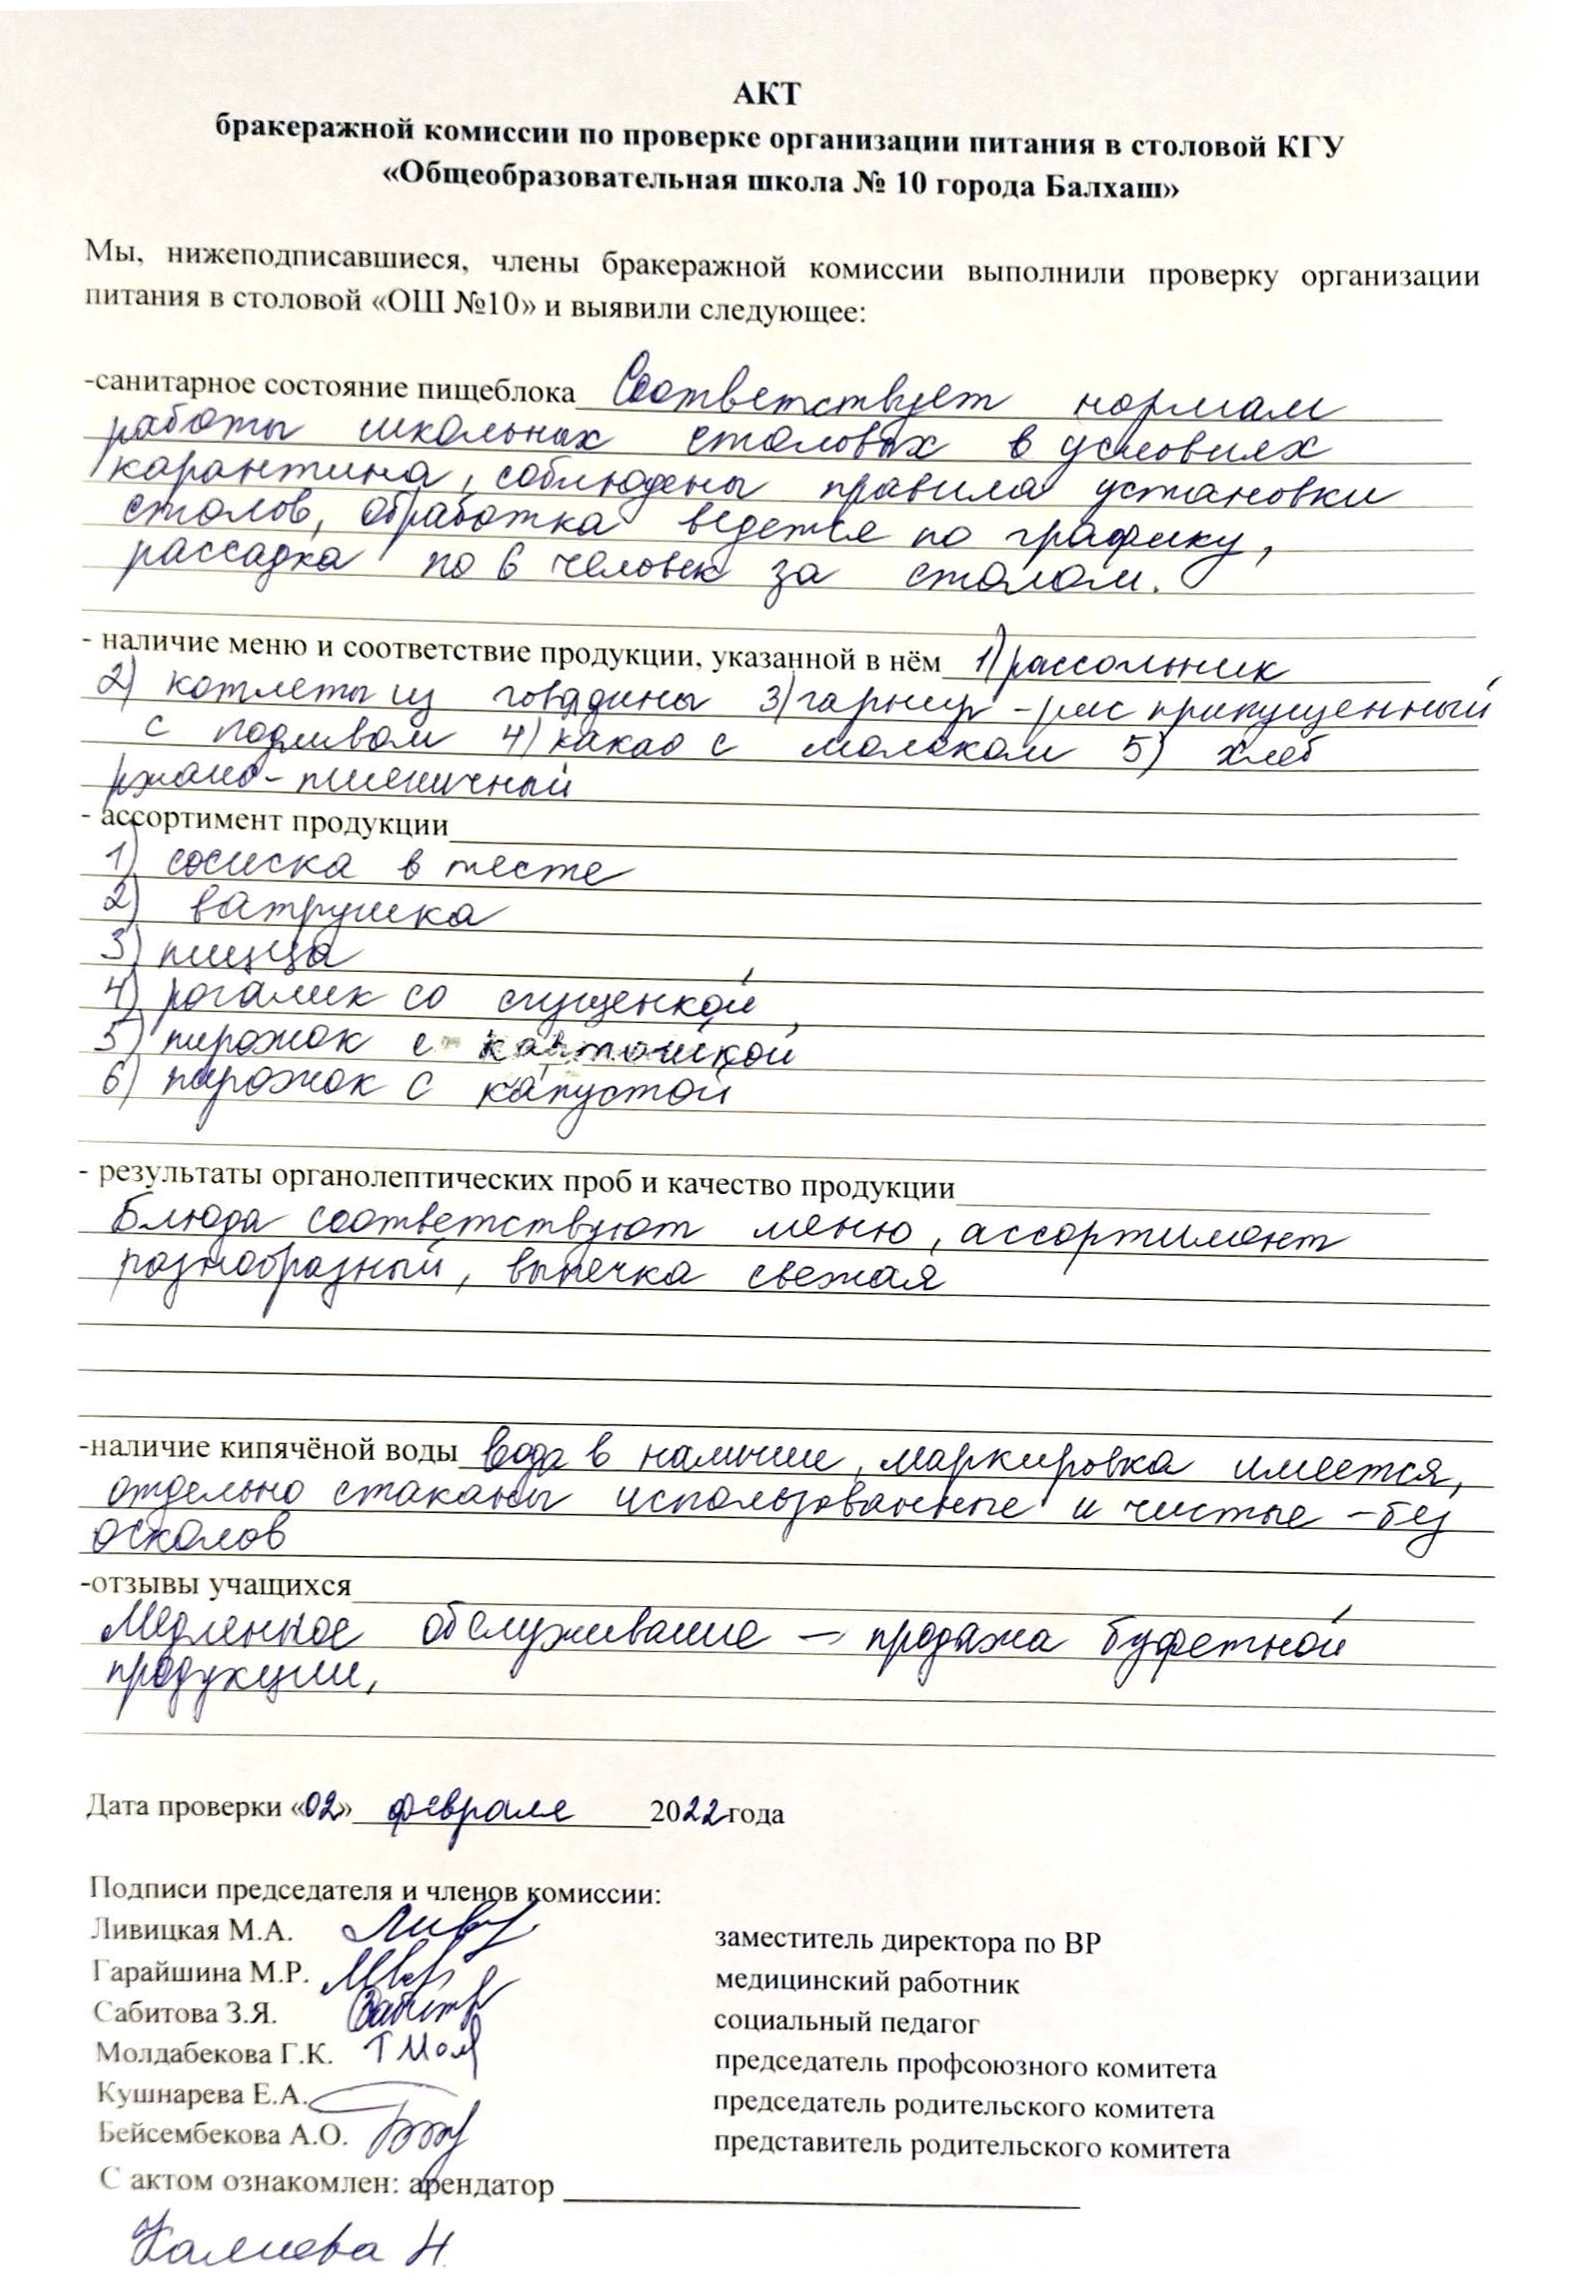 АКТ
бракеражной комиссии по проверке организации питания в столовой КГУ
«Общеобразовательная школа № 10 города Балхаш»
Мы, нижеподписавшиеся, члены бракеражной комиссии выполнили проверку организации
питания в столовой «ОШ №10» и выявили следующее:
-санитарное состояние пищеблока Соответствует нормам
работы школьных столовых в условиях
карантина, соблюдены правила установки
столов, обработка ведется по графику,
рассадка по 6 человек за столом.
- наличие меню и соответствие продукции, указанной в нём 1) рассольник
2) котлеты из говядины 3) гарнир - рис припущенный
с подливом 4) какао с молоком 5) хлеб
ржано-пшеничный
- ассортимент продукции
1) сосиска в тесте
2) ватрушка
3) пицца
4) рогалик со сгущенкой,
5) пирожок с картошкой
6) пирожок с капустой
- результаты органолептических проб и качество продукции
Блюда соответствуют меню, ассортимент
разнообразный, выпечка свежая
-наличие кипячёной воды вода в наличии, маркировка имеется,
отдельно стаканы использованные и чистые - без
осколов
-отзывы учащихся
Медленное обслуживание - продажа буфетной
продукции,
Дата проверки «02» февраля 2022 года
Подписи председателя и членов комиссии:
Ливицкая М.А. заместитель директора по ВР
Гарайшина М.Р. медицинский работник
Сабитова З.Я. социальный педагог
Молдабекова Г.К. председатель профсоюзного комитета
Кушнарева Е.А. председатель родительского комитета
Бейсембекова А.О. представитель родительского комитета
С актом ознакомлен: арендатор
Калиева Н.